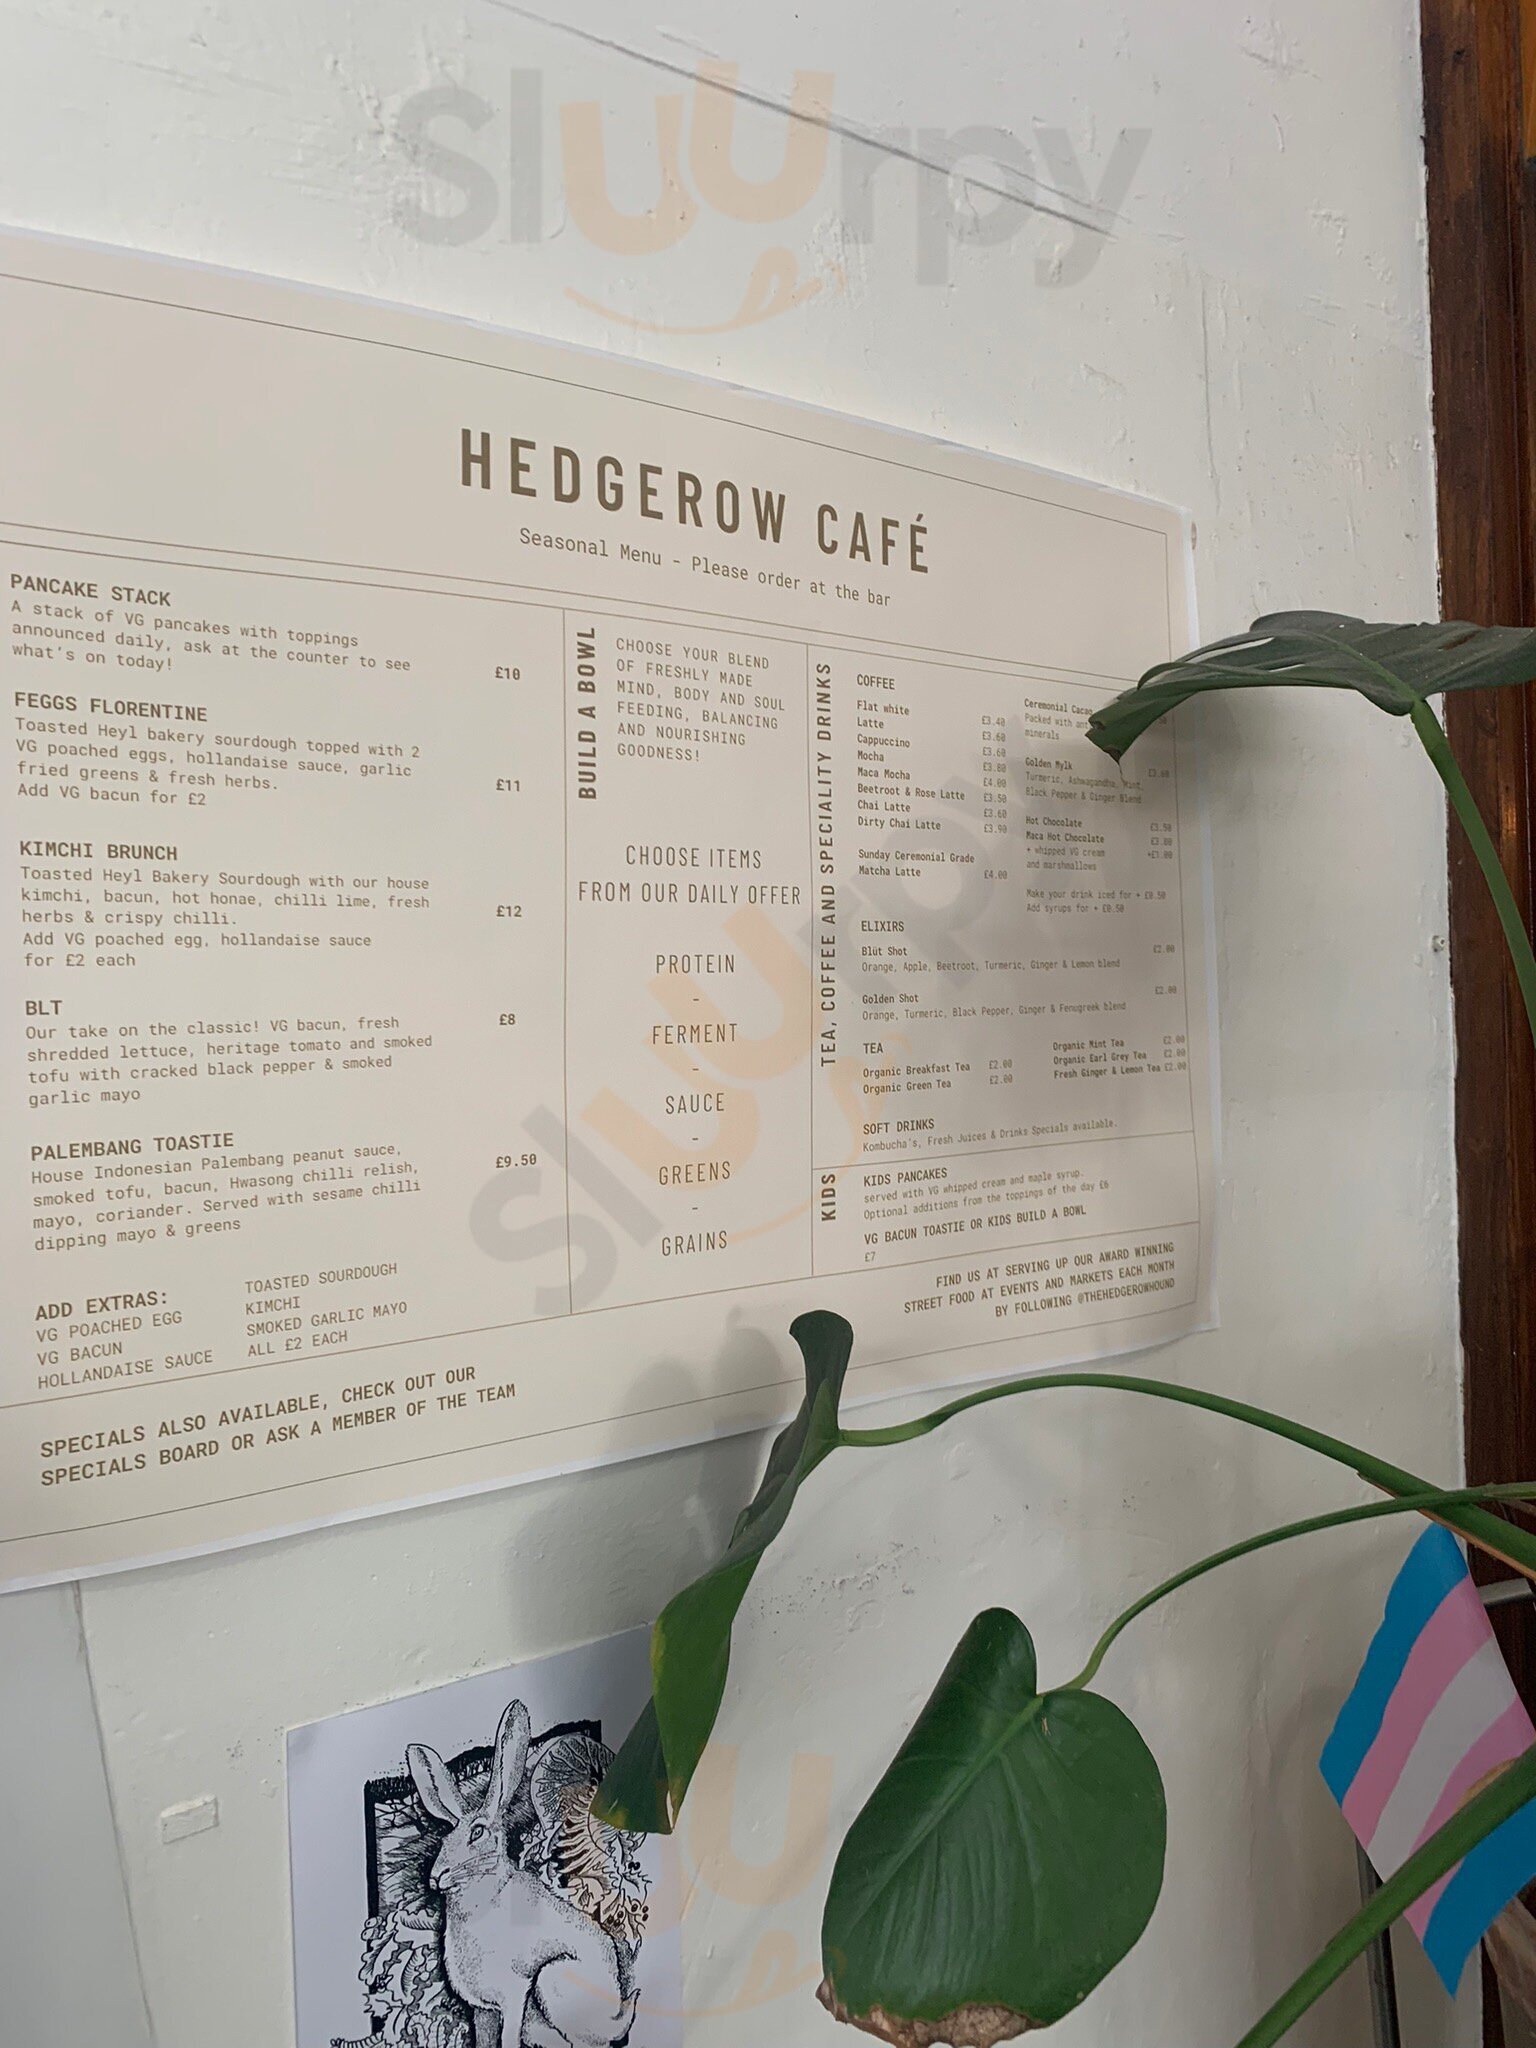 Sluurpy
HEDGEROW CAFÉ
Seasonal Menu - Please order at the bar
PANCAKE STACK
A stack of VG pancakes with toppings
announced daily, ask at the counter to see
what's on today!
£10
FEGGS FLORENTINE
Toasted Heyl bakery sourdough topped with 2
VG poached eggs, hollandaise sauce, garlic
fried greens & fresh herbs.
£11
Add VG bacun for £2
KIMCHI BRUNCH
Toasted Heyl Bakery Sourdough with our house
kimchi, bacun, hot honae, chilli lime, fresh
herbs & crispy chilli.
£12
Add VG poached egg, hollandaise sauce
for £2 each
BLT
£8
Our take on the classic! VG bacun, fresh
shredded lettuce, heritage tomato and smoked
tofu with cracked black pepper & smoked
garlic mayo
PALEMBANG TOASTIE
House Indonesian Palembang peanut sauce,
£9.50
smoked tofu, bacun, Hwasong chilli relish,
mayo, coriander. Served with sesame chilli
dipping mayo & greens
ADD EXTRAS:
VG POACHED EGG
VG BACUN
HOLLANDAISE SAUCE
TOASTED SOURDOUGH
KIMCHI
SMOKED GARLIC MAYO
ALL £2 EACH
SPECIALS ALSO AVAILABLE, CHECK OUT OUR
SPECIALS BOARD OR ASK A MEMBER OF THE TEAM
BUILD A BOWL
CHOOSE YOUR BLEND
OF FRESHLY MADE
MIND, BODY AND SOUL
FEEDING, BALANCING
AND NOURISHING
GOODNESS!
CHOOSE ITEMS
FROM OUR DAILY OFFER
PROTEIN
-
FERMENT
-
SAUCE
-
GREENS
-
GRAINS
TEA, COFFEE AND SPECIALITY DRINKS
COFFEE
Flat white £3.40
Latte £3.60
Cappuccino £3.60
Mocha £3.80
Maca Mocha £4.00
Beetroot & Rose Latte £3.50
Chai Latte £3.60
Dirty Chai Latte £3.90
Sunday Ceremonial Grade
Matcha Latte £4.00
Ceremonial Cacao
Packed with
minerals
Golden Mylk £3.60
Turmeric, Ashwagandha, Mint,
Black Pepper & Ginger Blend
Hot Chocolate £3.50
Maca Hot Chocolate £3.80
+ whipped VG cream +£1.00
and marshmallows
Make your drink iced for + £0.50
Add syrups for + £0.50
ELIXIRS
Blüt Shot £2.00
Orange, Apple, Beetroot, Turmeric, Ginger & Lemon blend
Golden Shot £2.00
Orange, Turmeric, Black Pepper, Ginger & Fenugreek blend
TEA
Organic Breakfast Tea £2.00
Organic Green Tea £2.00
Organic Mint Tea £2.00
Organic Earl Grey Tea £2.00
Fresh Ginger & Lemon Tea £2.00
SOFT DRINKS
Kombucha's, Fresh Juices & Drinks Specials available.
KIDS
KIDS PANCAKES
served with VG whipped cream and maple syrup.
Optional additions from the toppings of the day £6
VG BACUN TOASTIE OR KIDS BUILD A BOWL
£7
FIND US AT SERVING UP OUR AWARD WINNING
STREET FOOD AT EVENTS AND MARKETS EACH MONTH
BY FOLLOWING @THEHEDGEROWHOUND
Sluurpy